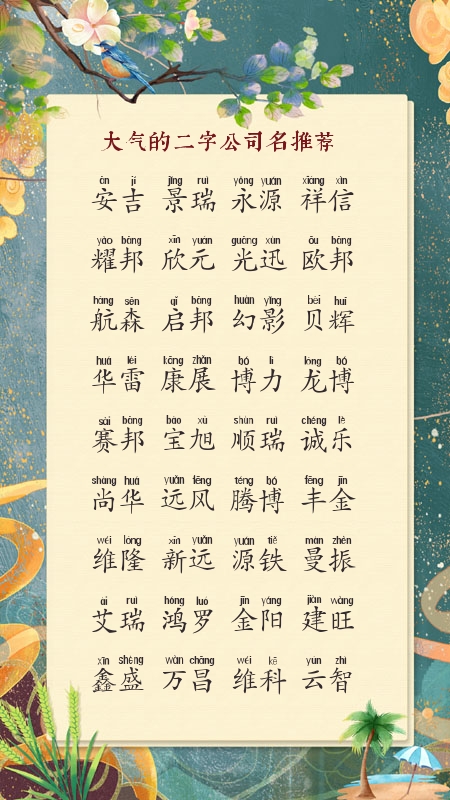 大气的二字公司名推荐
ān jí jǐng ruì yǒng yuán xiáng xìn
安吉 景瑞 永源 祥信
yào bāng xīn yuán guāng xùn ōu bāng
耀邦 欣元 光迅 欧邦
háng sēn qǐ bāng huàn yǐng bèi huī
航森 启邦 幻影 贝辉
huá léi kāng zhǎn bó lì lóng bó
华雷 康展 博力 龙博
sài bāng bǎo xù shùn ruì chéng lè
赛邦 宝旭 顺瑞 诚乐
shàng huá yuǎn fēng téng bó fēng jīn
尚华 远风 腾博 丰金
wéi lóng xīn yuǎn yuán tiě màn zhèn
维隆 新远 源铁 曼振
ài ruì hóng luó jīn yáng jiàn wàng
艾瑞 鸿罗 金阳 建旺
xīn shèng wàn chāng wéi kē yún zhì
鑫盛 万昌 维科 云智